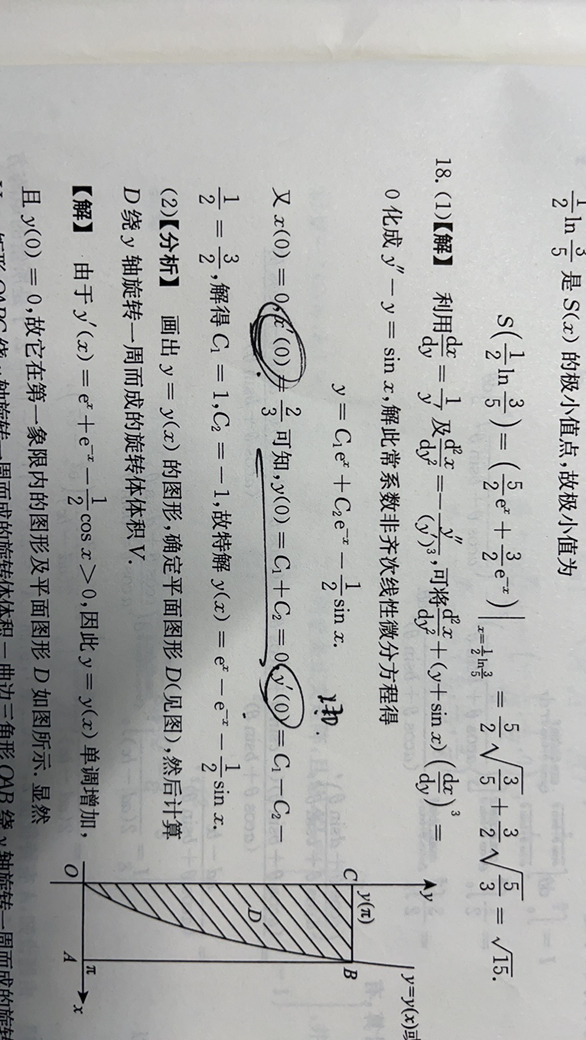 $\frac{1}{2}\ln\frac{3}{5}$ 是 $S(x)$ 的极小值点,故极小值为
$S\left(\frac{1}{2}\ln\frac{3}{5}\right)=\left(\frac{5}{2}e^{x}+\frac{3}{2}e^{-x}\right)\Big|_{x=\frac{1}{2}\ln\frac{3}{5}}=\frac{5}{2}\sqrt{\frac{3}{5}}+\frac{3}{2}\sqrt{\frac{5}{3}}=\sqrt{15}.$
18. (1)【解】 利用 $\frac{dx}{dy}=\frac{1}{y'}$ 及 $\frac{d^2x}{dy^2}=-\frac{y''}{(y')^3}$,可将 $\frac{d^2x}{dy^2}+(y+\sin x)\left(\frac{dx}{dy}\right)^3=$
0 化成 $y''-y=\sin x$,解此常系数非齐次线性微分方程得
$y=C_1e^{x}+C_2e^{-x}-\frac{1}{2}\sin x.$
又 $x(0)=0,x'(0)=\frac{2}{3}$ 可知,$y(0)=C_1+C_2=0,y'(0)=C_1-C_2-$
$\frac{1}{2}=\frac{3}{2}$,解得 $C_1=1,C_2=-1$,故特解 $y(x)=e^{x}-e^{-x}-\frac{1}{2}\sin x.$
(2)【分析】 画出 $y=y(x)$ 的图形,确定平面图形 D(见图),然后计算
D 绕 y 轴旋转一周而成的旋转体体积 V.
【解】 由于 $y'(x)=e^{x}+e^{-x}-\frac{1}{2}\cos x>0$,因此 $y=y(x)$ 单调增加,
且 $y(0)=0$,故它在第一象限内的图形及平面图形 D 如图所示. 显然
矩形 OABC 绕 y 轴旋转一周而成的旋转体体积 − 曲边三角形 OAB 绕 y 轴旋转一周而成的旋转
y
y=y(x)或
C
y(π)
B
D
O
A
π
x